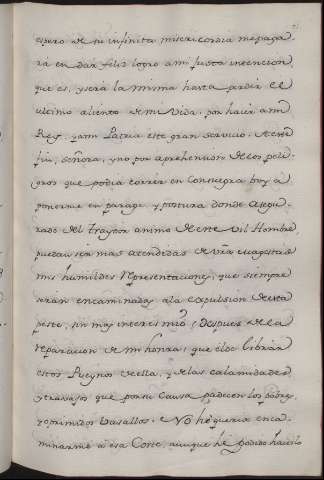 espero de su infinita misericordia me paga
rá en dar feliz logro a mi justa intencion,
que es, y será la misma hasta perder el
ultimo aliento de mi vida, por hacer a mi
Rey, y a mi Patria este gran servicio. A este
fin, señora, y no por aprehension de los peli-
gros que podia correr en Consuegra voy á
ponerme en parage, y postura donde asegu-
rado del traydor animo de este vil Hombre,
puedan ser mas atendidas de Vra Magestad
mis humildes representaciones, que siempre
seran encaminadas a la expulsion de esta
peste, sin mas interes mio (despues de la
reparacion de mi honra) que el de librar
estos Reynos de ella, y de las calamidades,
y travajos que por su causa padecen los pobres,
y oprimidos vasallos. No he querido enca
minarme a esa Corte, aunque he podido hacerlo